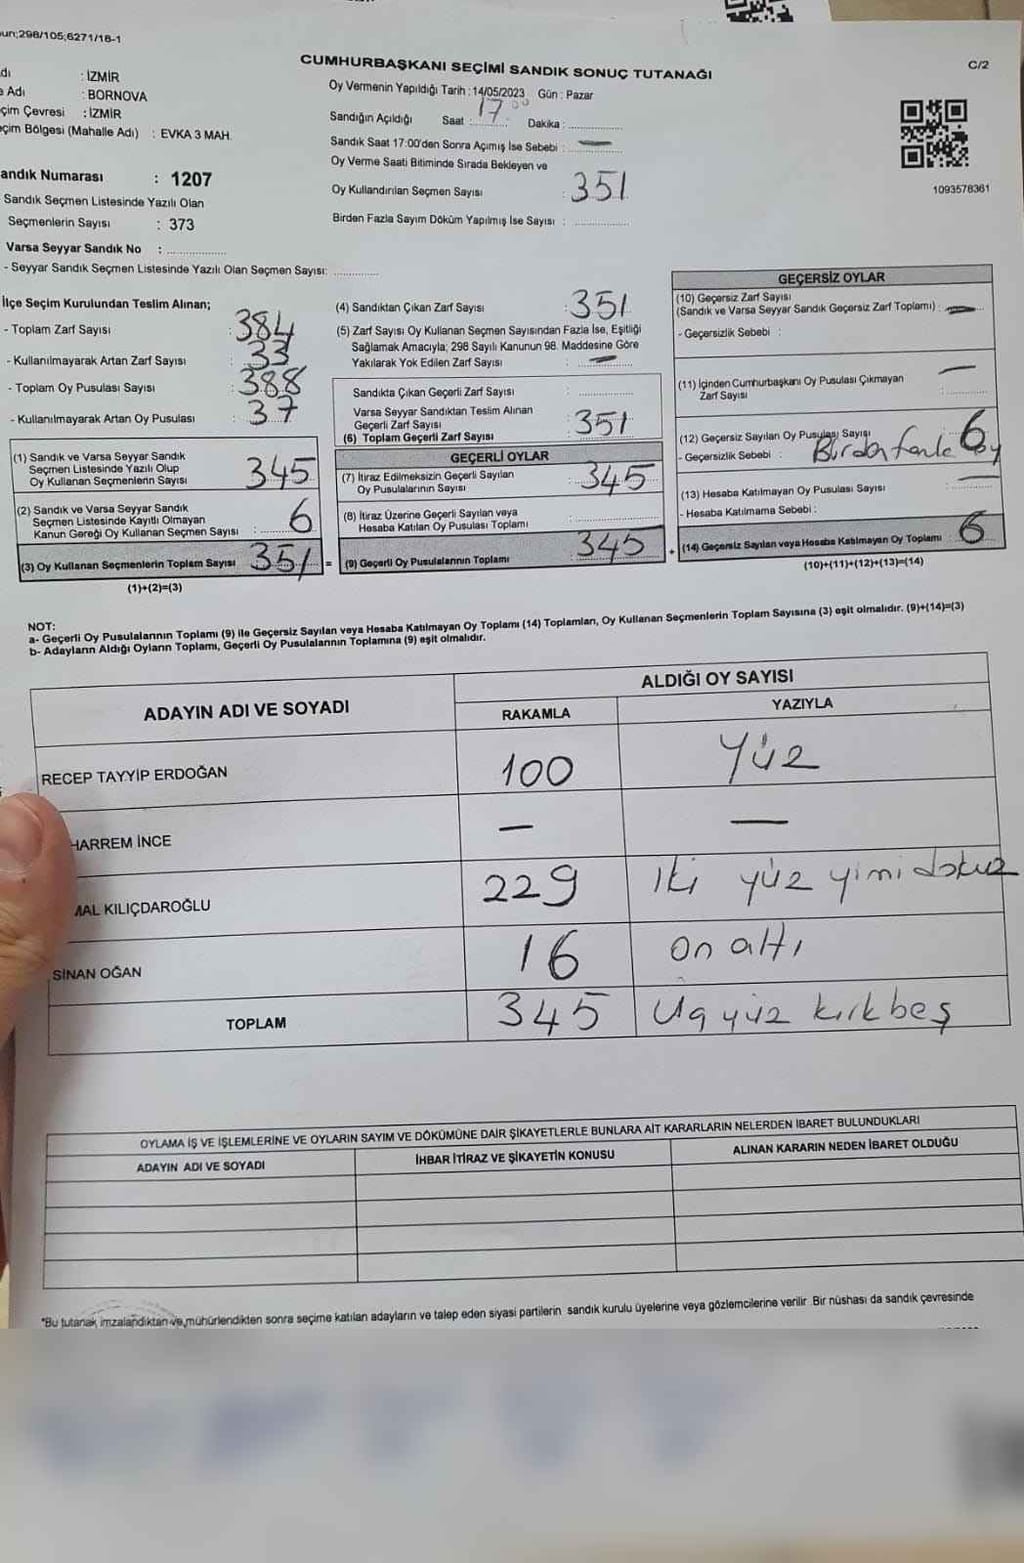 un;298/105;6271/18-1
C/2
CUMHURBAŞKANI SEÇİMİ SANDIK SONUÇ TUTANAĞI
dı : İZMİR
Adı : BORNOVA
çim Çevresi : İZMİR
çim Bölgesi (Mahalle Adı) : EVKA 3 MAH.
andık Numarası : 1207
Sandık Seçmen Listesinde Yazılı Olan
Seçmenlerin Sayısı : 373
Varsa Seyyar Sandık No : ................
- Seyyar Sandık Seçmen Listesinde Yazılı Olan Seçmen Sayısı: ............
Oy Vermenin Yapıldığı Tarih : 14/05/2023 Gün : Pazar
Sandığın Açıldığı Saat : 17 00 Dakika : ..............
Sandık Saat 17:00'den Sonra Açımış İse Sebebi : —
Oy Verme Saati Bitiminde Sırada Bekleyen ve
Oy Kullandırılan Seçmen Sayısı : 351
Birden Fazla Sayım Döküm Yapılmış İse Sayısı : ..............
1093578361
İlçe Seçim Kurulundan Teslim Alınan;
- Toplam Zarf Sayısı : 384
- Kullanılmayarak Artan Zarf Sayısı : 33
- Toplam Oy Pusulası Sayısı : 388
- Kullanılmayarak Artan Oy Pusulası : 37
(1) Sandık ve Varsa Seyyar Sandık
Seçmen Listesinde Yazılı Olup
Oy Kullanan Seçmenlerin Sayısı 345
(2) Sandık ve Varsa Seyyar Sandık
Seçmen Listesinde Kayıtlı Olmayan
Kanun Gereği Oy Kullanan Seçmen Sayısı : 6
(3) Oy Kullanan Seçmenlerin Toplam Sayısı 351 =
(1)+(2)=(3)
(4) Sandıktan Çıkan Zarf Sayısı : 351
(5) Zarf Sayısı Oy Kullanan Seçmen Sayısından Fazla İse, Eşitliği
Sağlamak Amacıyla; 298 Sayılı Kanunun 98. Maddesine Göre
Yakılarak Yok Edilen Zarf Sayısı : —
Sandıkta Çıkan Geçerli Zarf Sayısı : ..............
Varsa Seyyar Sandıktan Teslim Alınan
Geçerli Zarf Sayısı
(6) Toplam Geçerli Zarf Sayısı : 351
GEÇERLİ OYLAR
(7) İtiraz Edilmeksizin Geçerli Sayılan
Oy Pusulalarının Sayısı : 345
(8) İtiraz Üzerine Geçerli Sayılan veya
Hesaba Katılan Oy Pusulası Toplamı : ..............
(9) Geçerli Oy Pusulalarının Toplamı : 345 +
GEÇERSİZ OYLAR
(10) Geçersiz Zarf Sayısı
(Sandık ve Varsa Seyyar Sandık Geçersiz Zarf Toplamı) : —
- Geçersizlik Sebebi :
(11) İçinden Cumhurbaşkanı Oy Pusulası Çıkmayan
Zarf Sayısı : —
(12) Geçersiz Sayılan Oy Pusulası Sayısı 6
- Geçersizlik Sebebi : Birden fazla oy
(13) Hesaba Katılmayan Oy Pusulası Sayısı : —
- Hesaba Katılmama Sebebi :
(14) Geçersiz Sayılan veya Hesaba Katılmayan Oy Toplamı : 6
(10)+(11)+(12)+(13)=(14)
NOT:
a- Geçerli Oy Pusulalarının Toplamı (9) ile Geçersiz Sayılan veya Hesaba Katılmayan Oy Toplamı (14) Toplamları, Oy Kullanan Seçmenlerin Toplam Sayısına (3) eşit olmalıdır. (9)+(14)=(3)
b- Adayların Aldığı Oyların Toplamı, Geçerli Oy Pusulalarının Toplamına (9) eşit olmalıdır.
ADAYIN ADI VE SOYADI ALDIĞI OY SAYISI
RAKAMLA YAZIYLA
RECEP TAYYİP ERDOĞAN 100 Yüz
HARREM İNCE — —
MAL KILIÇDAROĞLU 229 İki yüz yimi dokuz
SİNAN OĞAN 16 On altı
TOPLAM 345 Üç yüz kırkbeş
OYLAMA İŞ VE İŞLEMLERİNE VE OYLARIN SAYIM VE DÖKÜMÜNE DAİR ŞİKAYETLERLE BUNLARA AİT KARARLARIN NELERDEN İBARET BULUNDUKLARI
ADAYIN ADI VE SOYADI İHBAR İTİRAZ VE ŞİKAYETİN KONUSU ALINAN KARARIN NEDEN İBARET OLDUĞU
*Bu tutanak imzalandıktan ve mühürlendikten sonra seçime katılan adayların ve talep eden siyasi partilerin sandık kurulu üyelerine veya gözlemcilerine verilir. Bir nüshası da sandık çevresinde